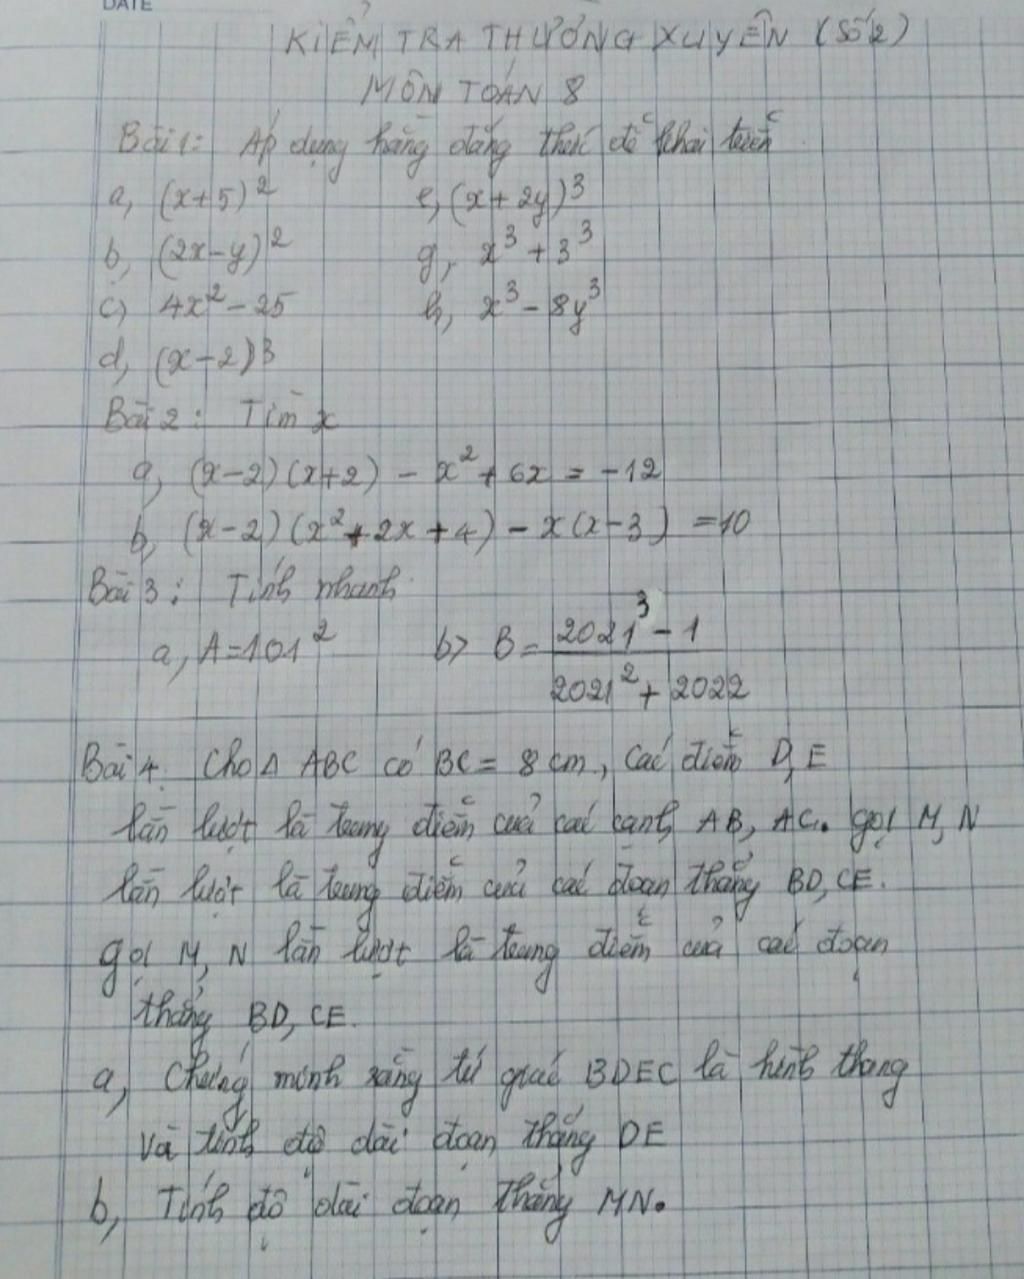 DATE
KIỂM TRA THƯỜNG XUYÊN (Số 2)
MÔN TOÁN 8
Bài 1: Áp dụng hằng đẳng thức để khai triển
a, (x+5)² e, (x+2y)³
b, (2x-y)² g, x³+3³
c) 4x²-25 h, x³-8y³
d, (x-2)3
Bài 2: Tìm x
a, (x-2)(x+2) - x²+6x = -12
b, (x-2)(x²+2x+4) - x(x-3) =10
Bài 3: Tính nhanh
a, A=101² b> B= (2021³-1)/(2021²+2022)
Bài 4. Cho Δ ABC có BC= 8cm, các điểm D,E
lần lượt là trung điểm của các cạnh AB, AC. gọi M,N
lần lượt là trung điểm của các đoạn thẳng BD,CE.
gọi M, N lần lượt là trung điểm của các đoạn
thẳng BD, CE.
a, Chứng minh rằng tứ giác BDEC là hình thang
Và tính độ dài đoạn thẳng DE
b, Tính độ dài đoạn thẳng MN.